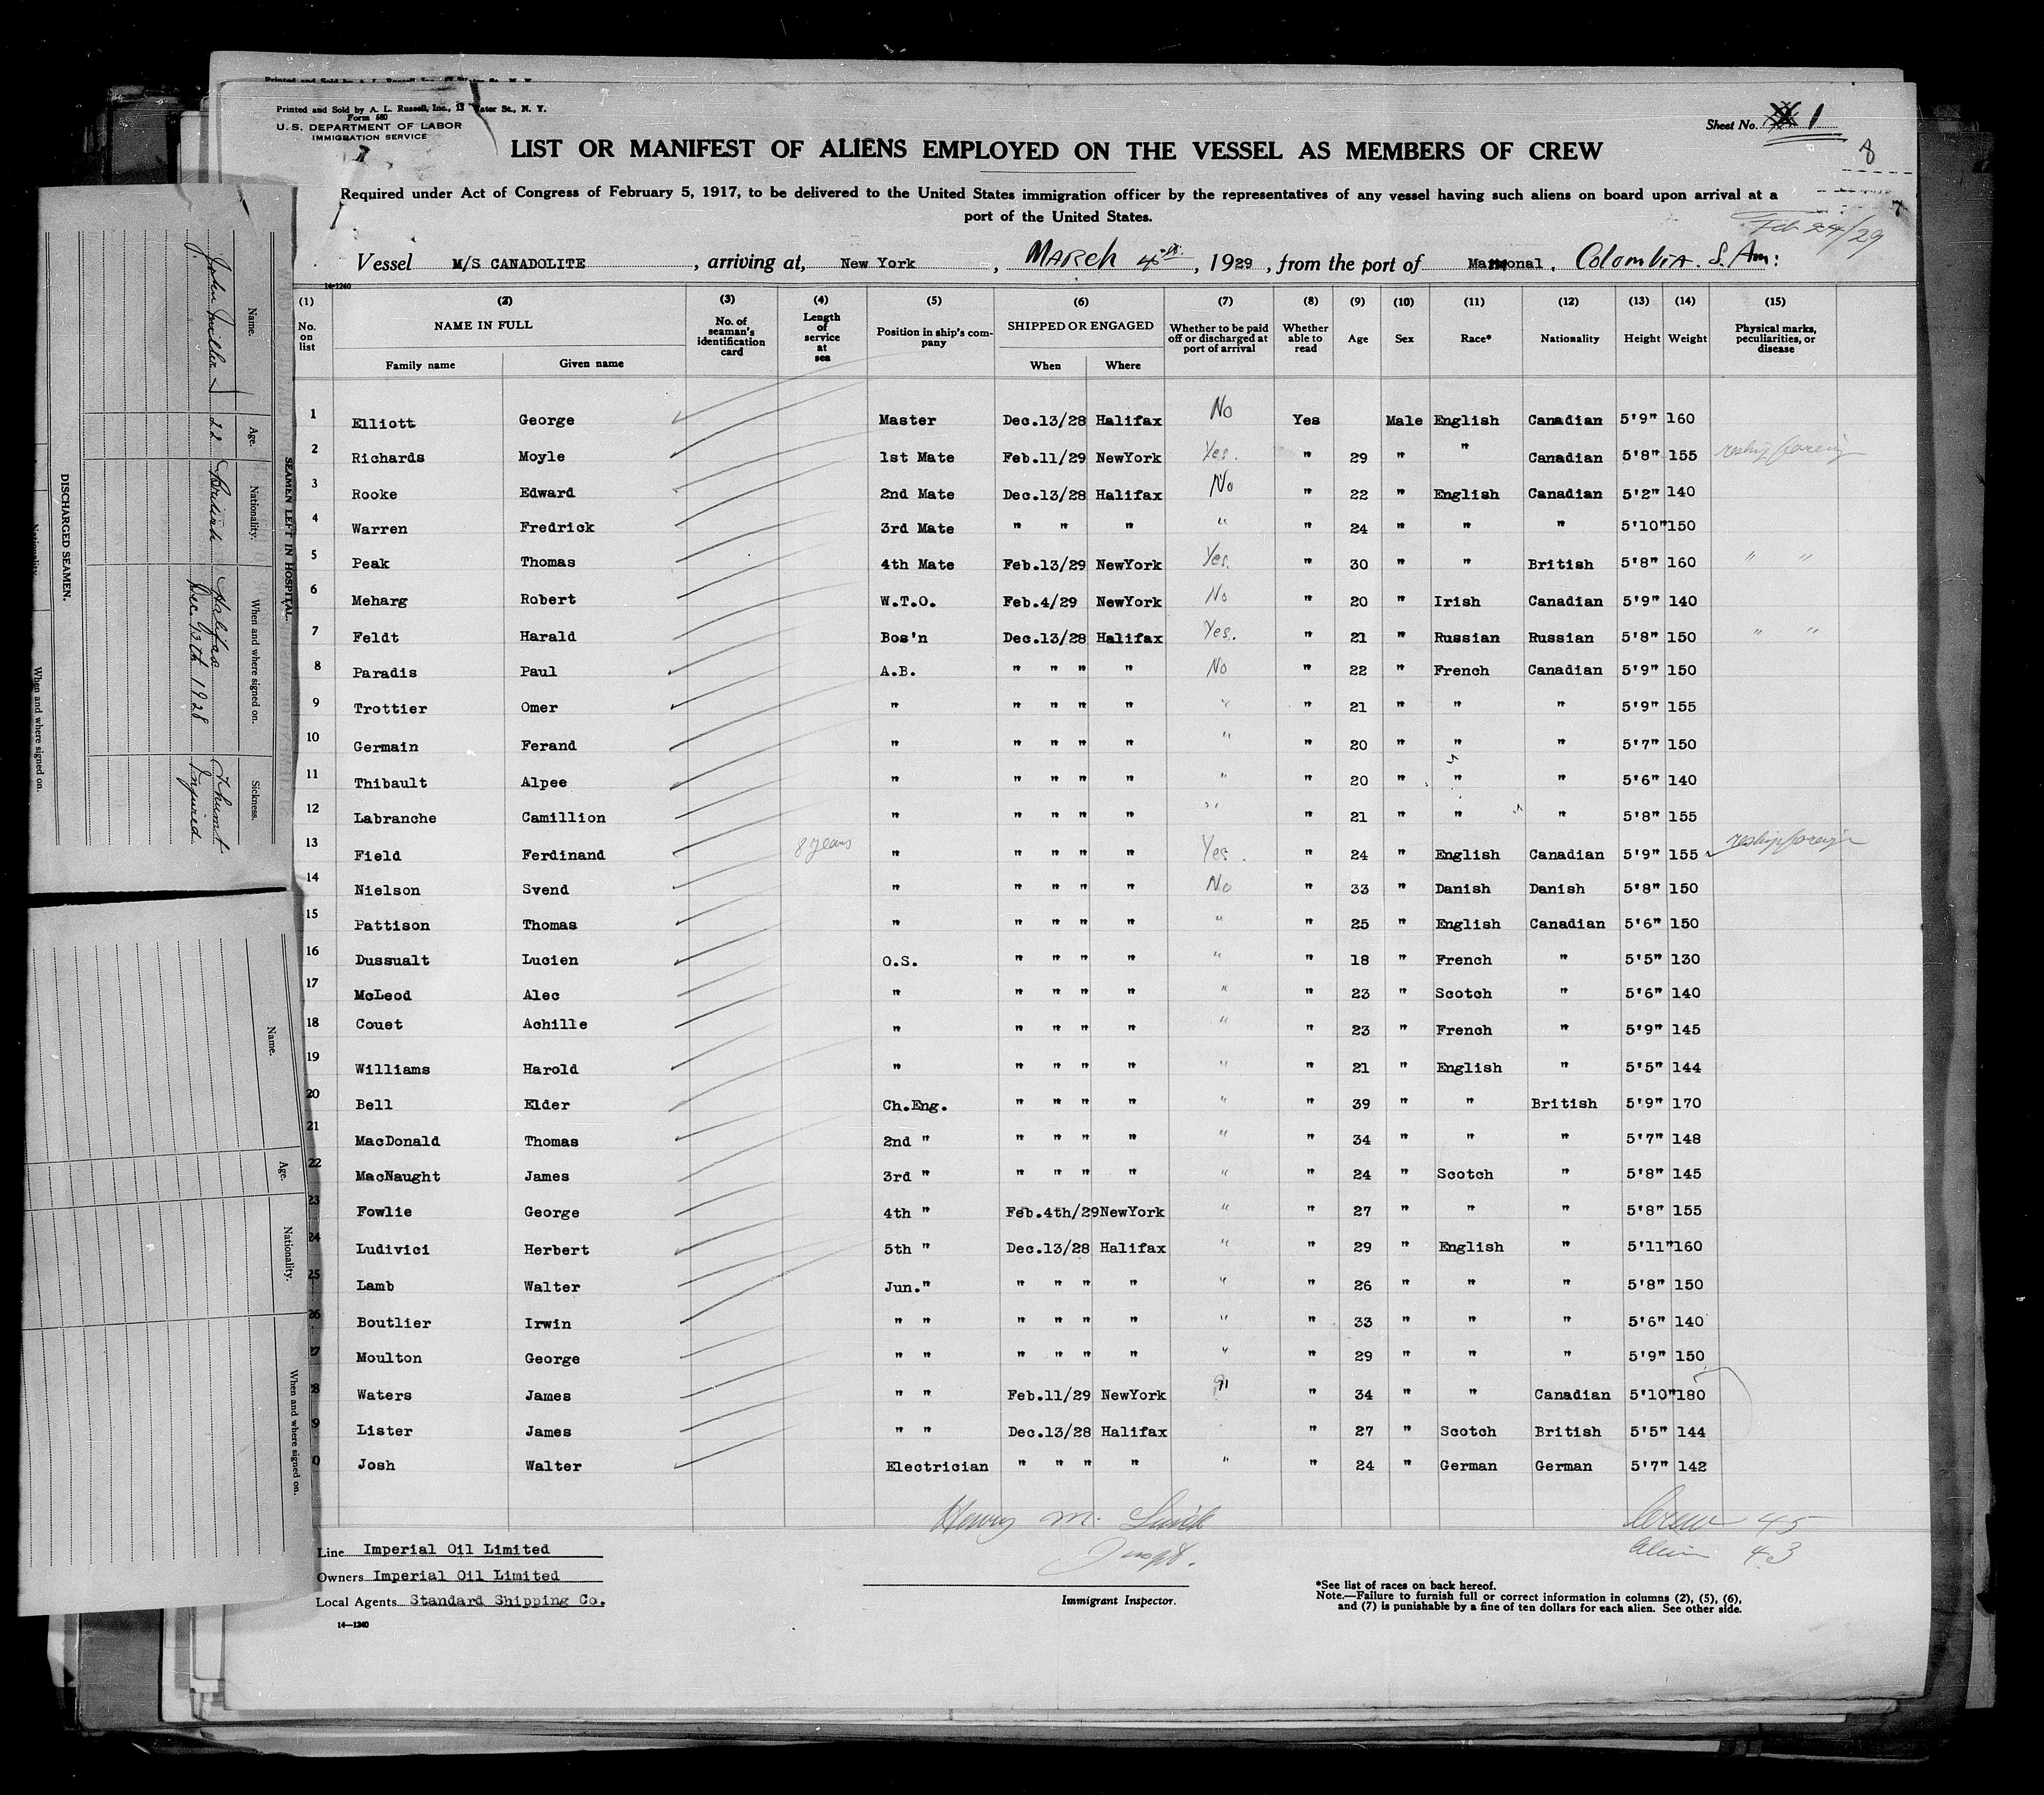 Printed and Sold by A. L. Russell, Inc., Water St., N. Y.
Form 680
U. S. DEPARTMENT OF LABOR
IMMIGRATION SERVICE
Sheet No. 1
8
LIST OR MANIFEST OF ALIENS EMPLOYED ON THE VESSEL AS MEMBERS OF CREW
Required under Act of Congress of February 5, 1917, to be delivered to the United States immigration officer by the representatives of any vessel having such aliens on board upon arrival at a
port of the United States.
Feb 24/29
Vessel M/S CANADOLITE, arriving at, New York, March 4th, 1929, from the port of Colombia. S. Am:
14-1240
(1) (2) (3) (4) (5) (6) (7) (8) (9) (10) (11) (12) (13) (14) (15)
No. on list NAME IN FULL Family name Given name No. of seaman's identification card Length of service at sea Position in ship's company SHIPPED OR ENGAGED When Where Whether to be paid off or discharged at port of arrival Whether able to read Age Sex Race* Nationality Height Weight Physical marks, peculiarities, or disease
1 Elliott George Master Dec.13/28 Halifax No Yes Male English Canadian 5'9" 160
2 Richards Moyle 1st Mate Feb.11/29 NewYork Yes. " 29 " " Canadian 5'8" 155 reship foreign
3 Rooke Edward 2nd Mate Dec.13/28 Halifax No " 22 " English Canadian 5'2" 140
4 Warren Fredrick 3rd Mate " " " " " 24 " " " 5'10" 150
5 Peak Thomas 4th Mate Feb.13/29 NewYork Yes. " 30 " " British 5'8" 160 " "
6 Meharg Robert W.T.O. Feb.4/29 NewYork No " 20 " Irish Canadian 5'9" 140
7 Feldt Harald Bos'n Dec.13/28 Halifax Yes. " 21 " Russian Russian 5'8" 150 " "
8 Paradis Paul A.B. " " " " No " 22 " French Canadian 5'9" 150
9 Trottier Omer " " " " " " " 21 " " " 5'9" 155
10 Germain Ferand " " " " " " " 20 " " " 5'7" 150
11 Thibault Alpee " " " " " " " 20 " " " 5'6" 140
12 Labranche Camillion " " " " " " " 21 " " " 5'8" 155
13 Field Ferdinand 8 years " " " " " Yes. " 24 " English Canadian 5'9" 155 reship foreign
14 Nielson Svend " " " " " No " 33 " Danish Danish 5'8" 150
15 Pattison Thomas " " " " " " " 25 " English Canadian 5'6" 150
16 Dussualt Lucien O.S. " " " " " " 18 " French " 5'5" 130
17 McLeod Alec " " " " " " " 23 " Scotch " 5'6" 140
18 Couet Achille " " " " " " " 23 " French " 5'9" 145
19 Williams Harold " " " " " " " 21 " English " 5'5" 144
20 Bell Elder Ch.Eng. " " " " " " 39 " " British 5'9" 170
21 MacDonald Thomas 2nd " " " " " " " 34 " " " 5'7" 148
22 MacNaught James 3rd " " " " " " " 24 " Scotch " 5'8" 145
23 Fowlie George 4th " Feb.4th/29 NewYork " " 27 " " " 5'8" 155
24 Ludivici Herbert 5th " Dec.13/28 Halifax " " 29 " English " 5'11" 160
25 Lamb Walter Jun." " " " " " " 26 " " " 5'8" 150
26 Boutlier Irwin " " " " " " " " 33 " " " 5'6" 140
27 Moulton George " " " " " " " " 29 " " " 5'9" 150
8 Waters James " " Feb.11/29 NewYork " " 34 " " Canadian 5'10" 180
9 Lister James " " Dec.13/28 Halifax " 27 " Scotch British 5'5" 144
0 Josh Walter Electrician " " " " " " 24 " German German 5'7" 142
Henry M.
Inspt.
Crew 45
Alien 43
Line Imperial Oil Limited
Owners Imperial Oil Limited
Local Agents Standard Shipping Co.
Immigrant Inspector.
*See list of races on back hereof.
Note.—Failure to furnish full or correct information in columns (2), (5), (6),
and (7) is punishable by a fine of ten dollars for each alien. See other side.
14—1240
SEAMEN LEFT IN HOSPITAL.
Name. Age. Nationality. When and where signed on. Sickness.
John Miller 22 British Halifax Dec. 13th 1928 Injured
DISCHARGED SEAMEN.
Nationality. When and where signed on.
Name. Age. Nationality. When and where signed on.